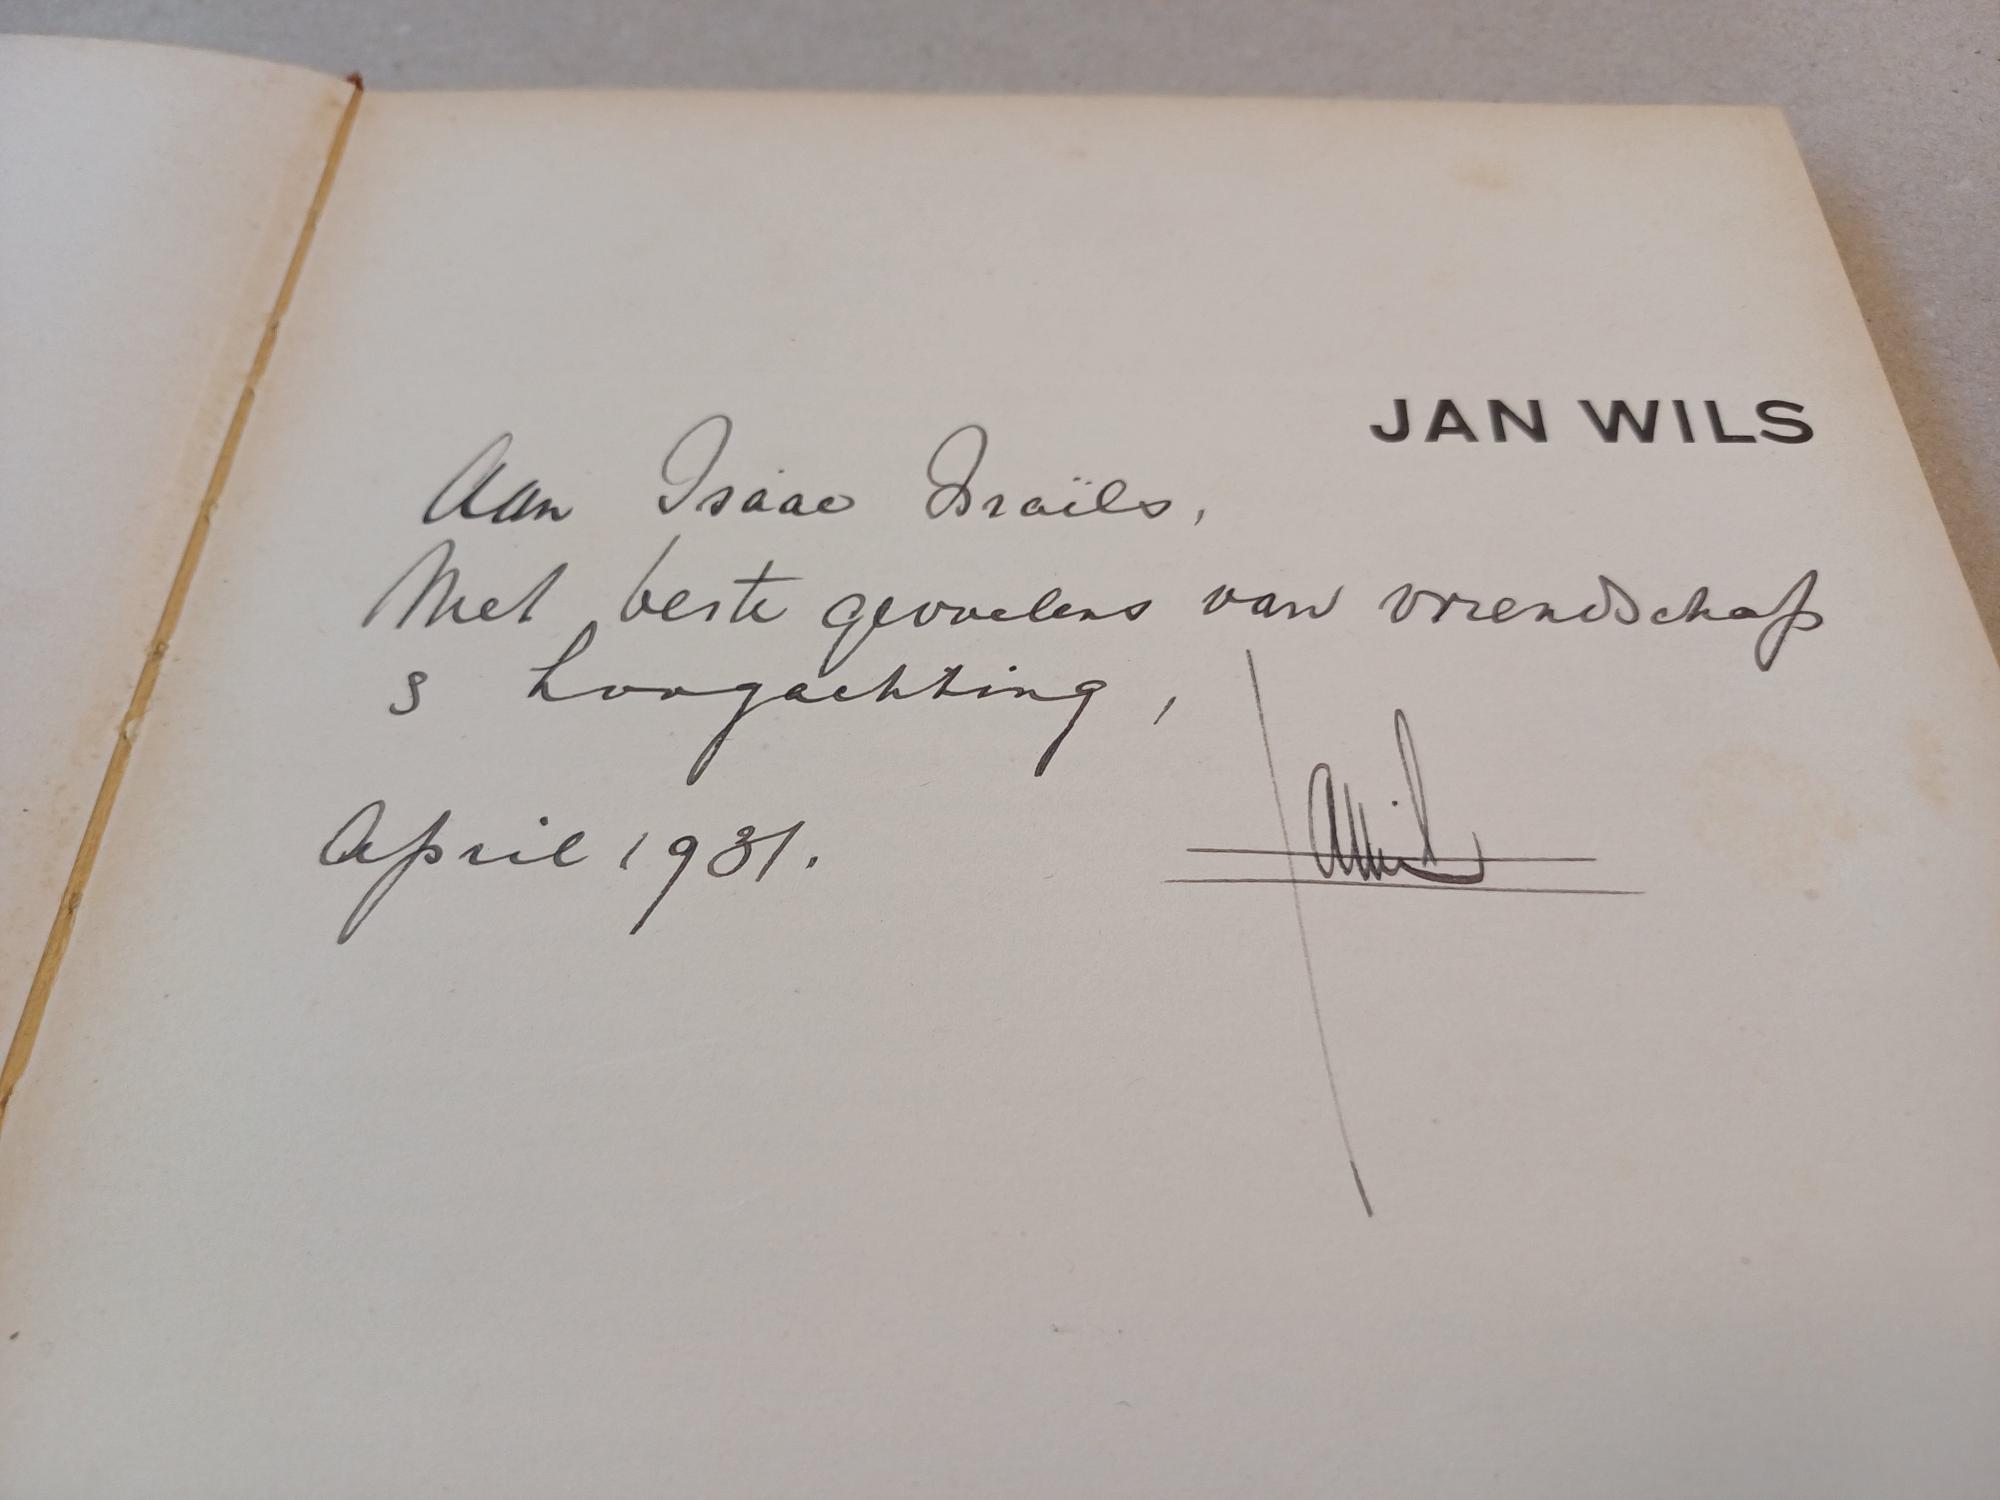 JAN WILS
Aan Isaac Israïls,
Met beste gevoelens van vriendschap
& hoogachting,
April 1931.